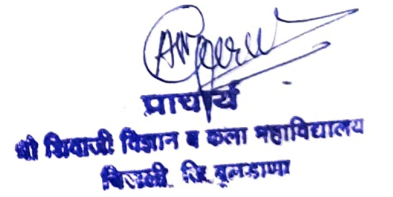 प्राचार्य
श्री शिवाजी विज्ञान व कला महाविद्यालय
चिखली जि. बुलडाणा